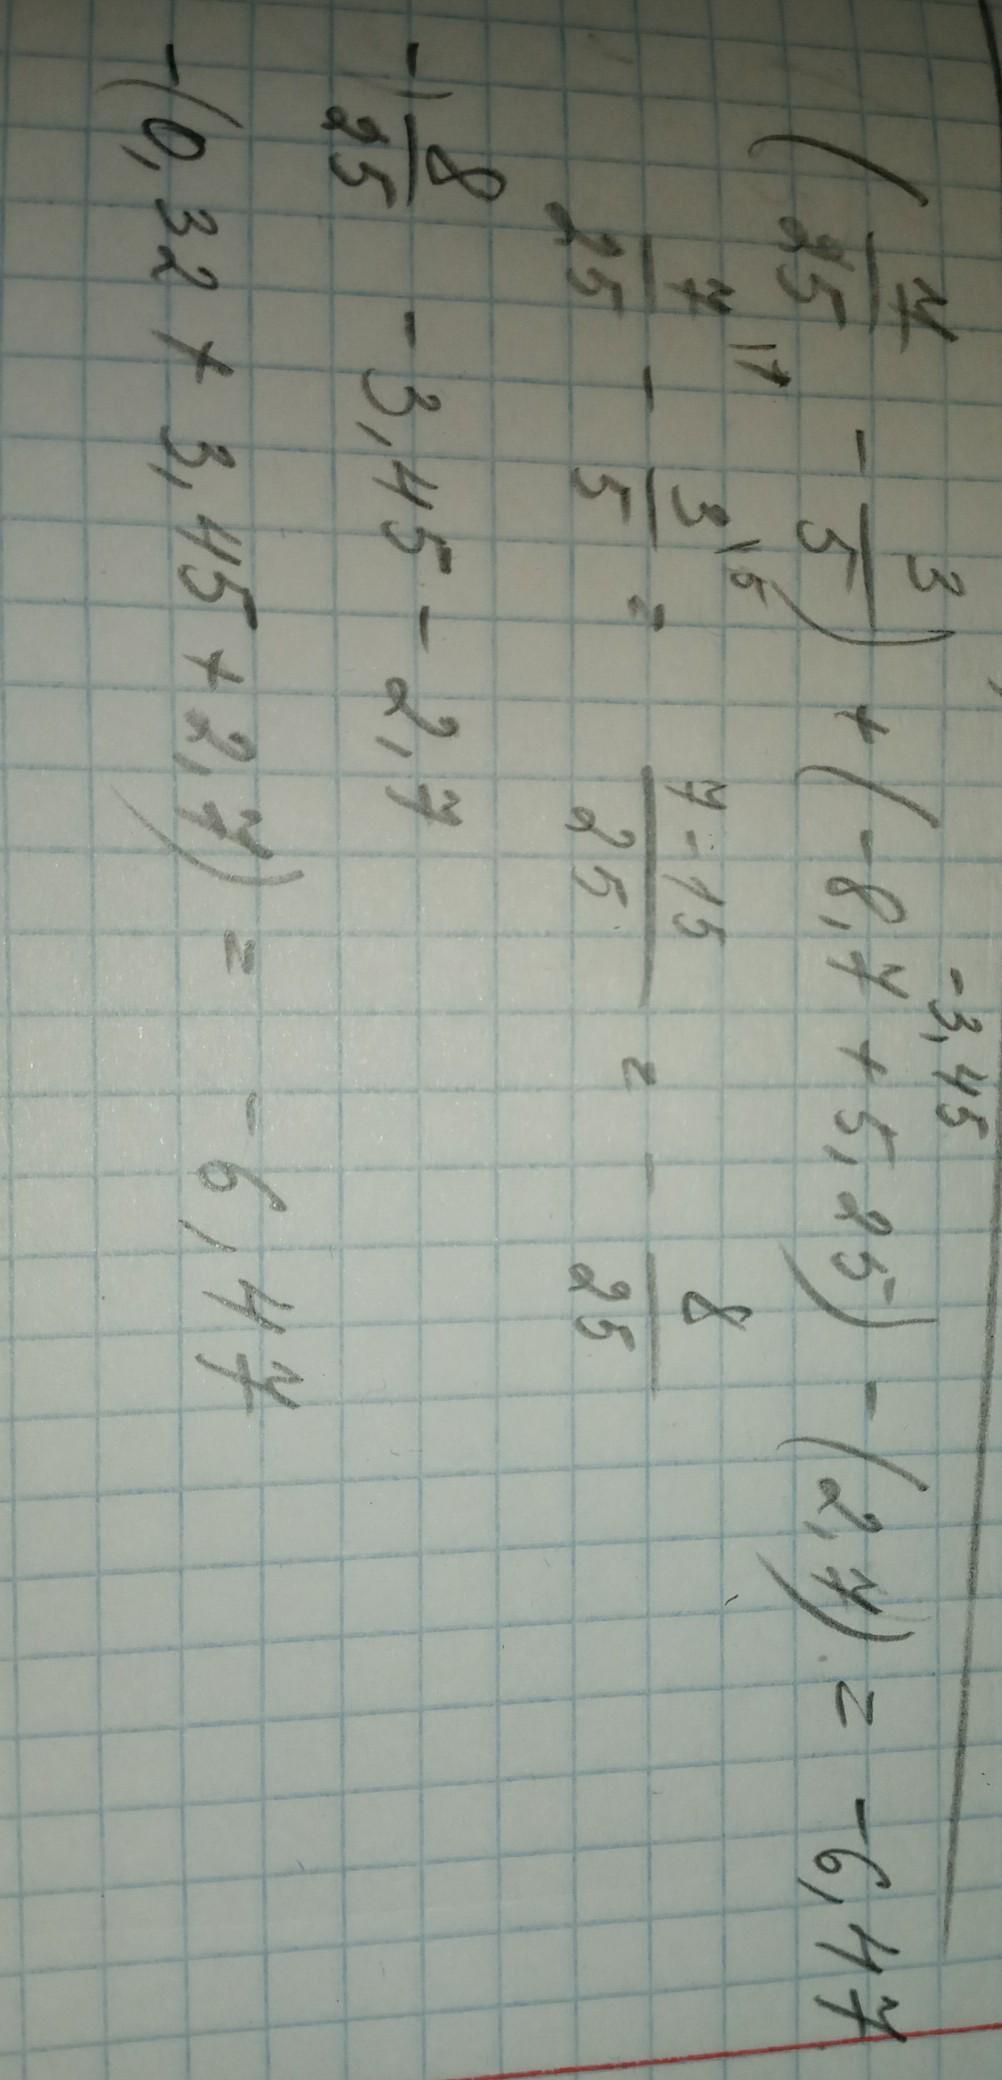 -3,45
(7/25 - 3/5) + (-8,7 + 5,25) - (2,7) = -6,47
7/25 - 3/5 = 7-15/25 = - 8/25
- 8/25 - 3,45 - 2,7
-(0,32 + 3,45 + 2,7) = -6,47